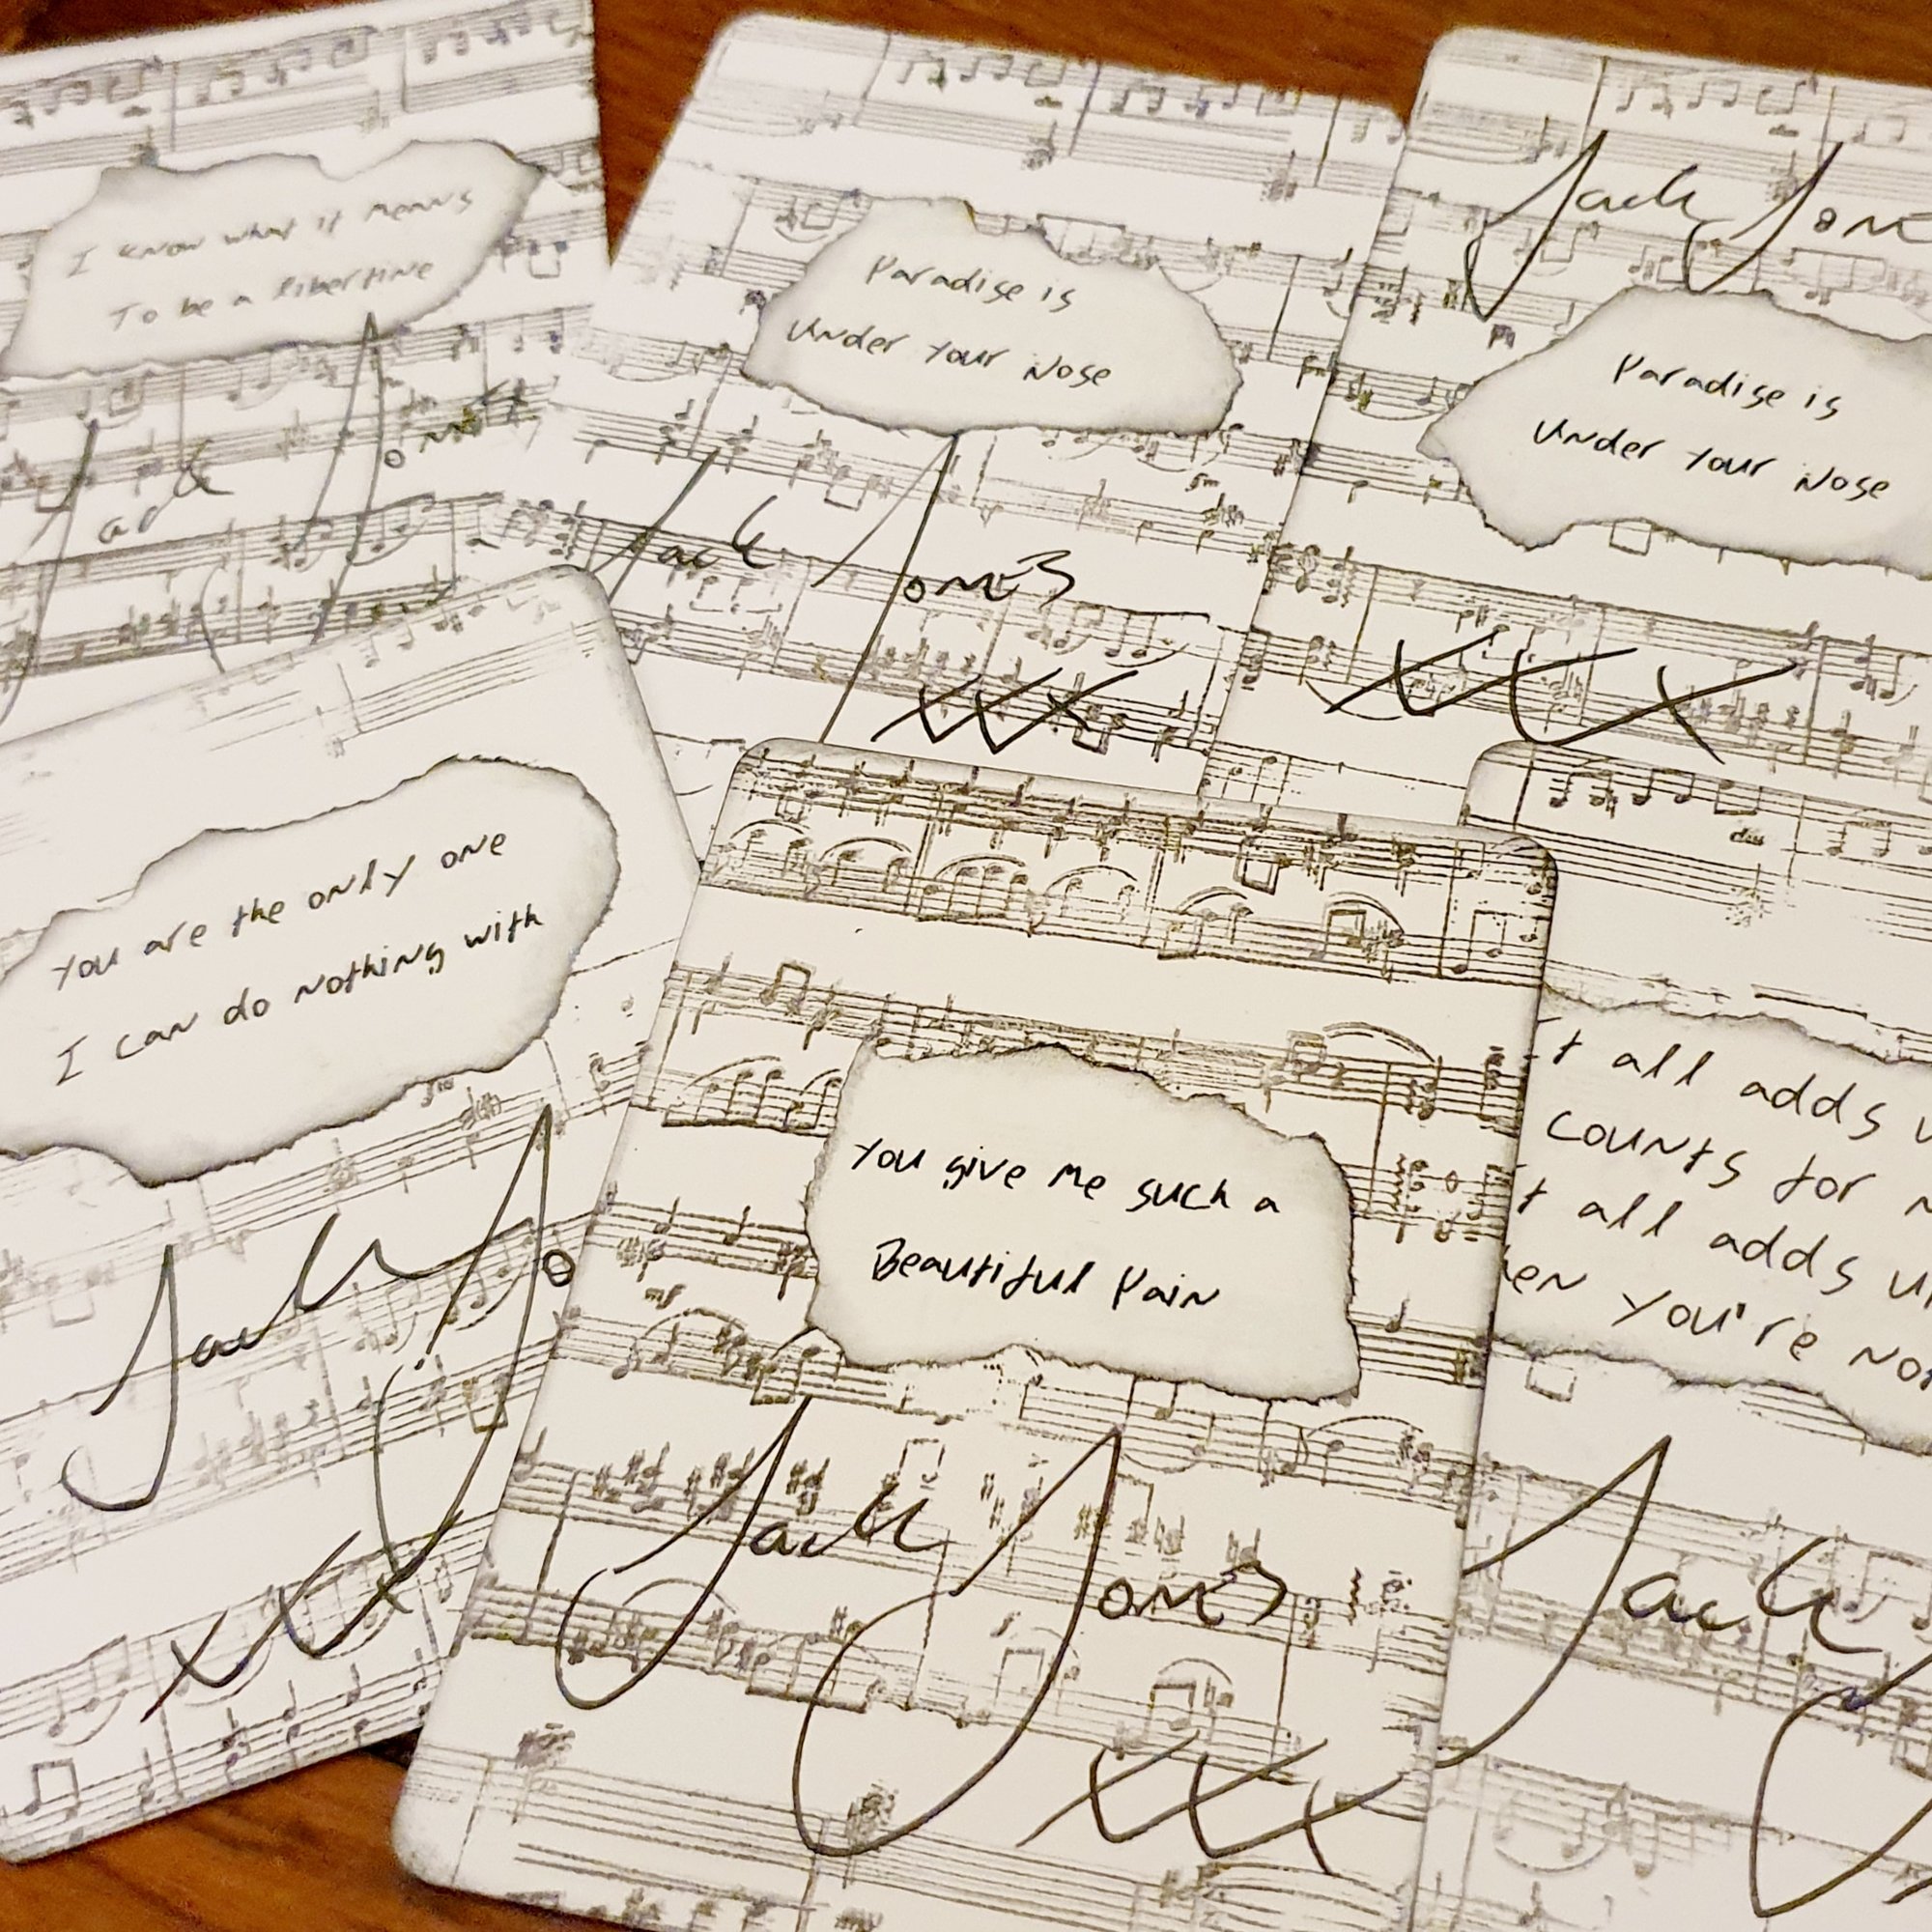 I know what it means
To be a libertine
Jack Jones
Paradise is
Under Your Nose
Jack Jones
xxx
Jack Jone
Paradise is
Under Your Nose
xxx
You are the only one
I can do nothing with
Jack Jo
xxx
You give me such a
Beautiful Pain
Jack Jones
xxx
t all adds u
counts for n
t all adds up
en you're no
Jack J